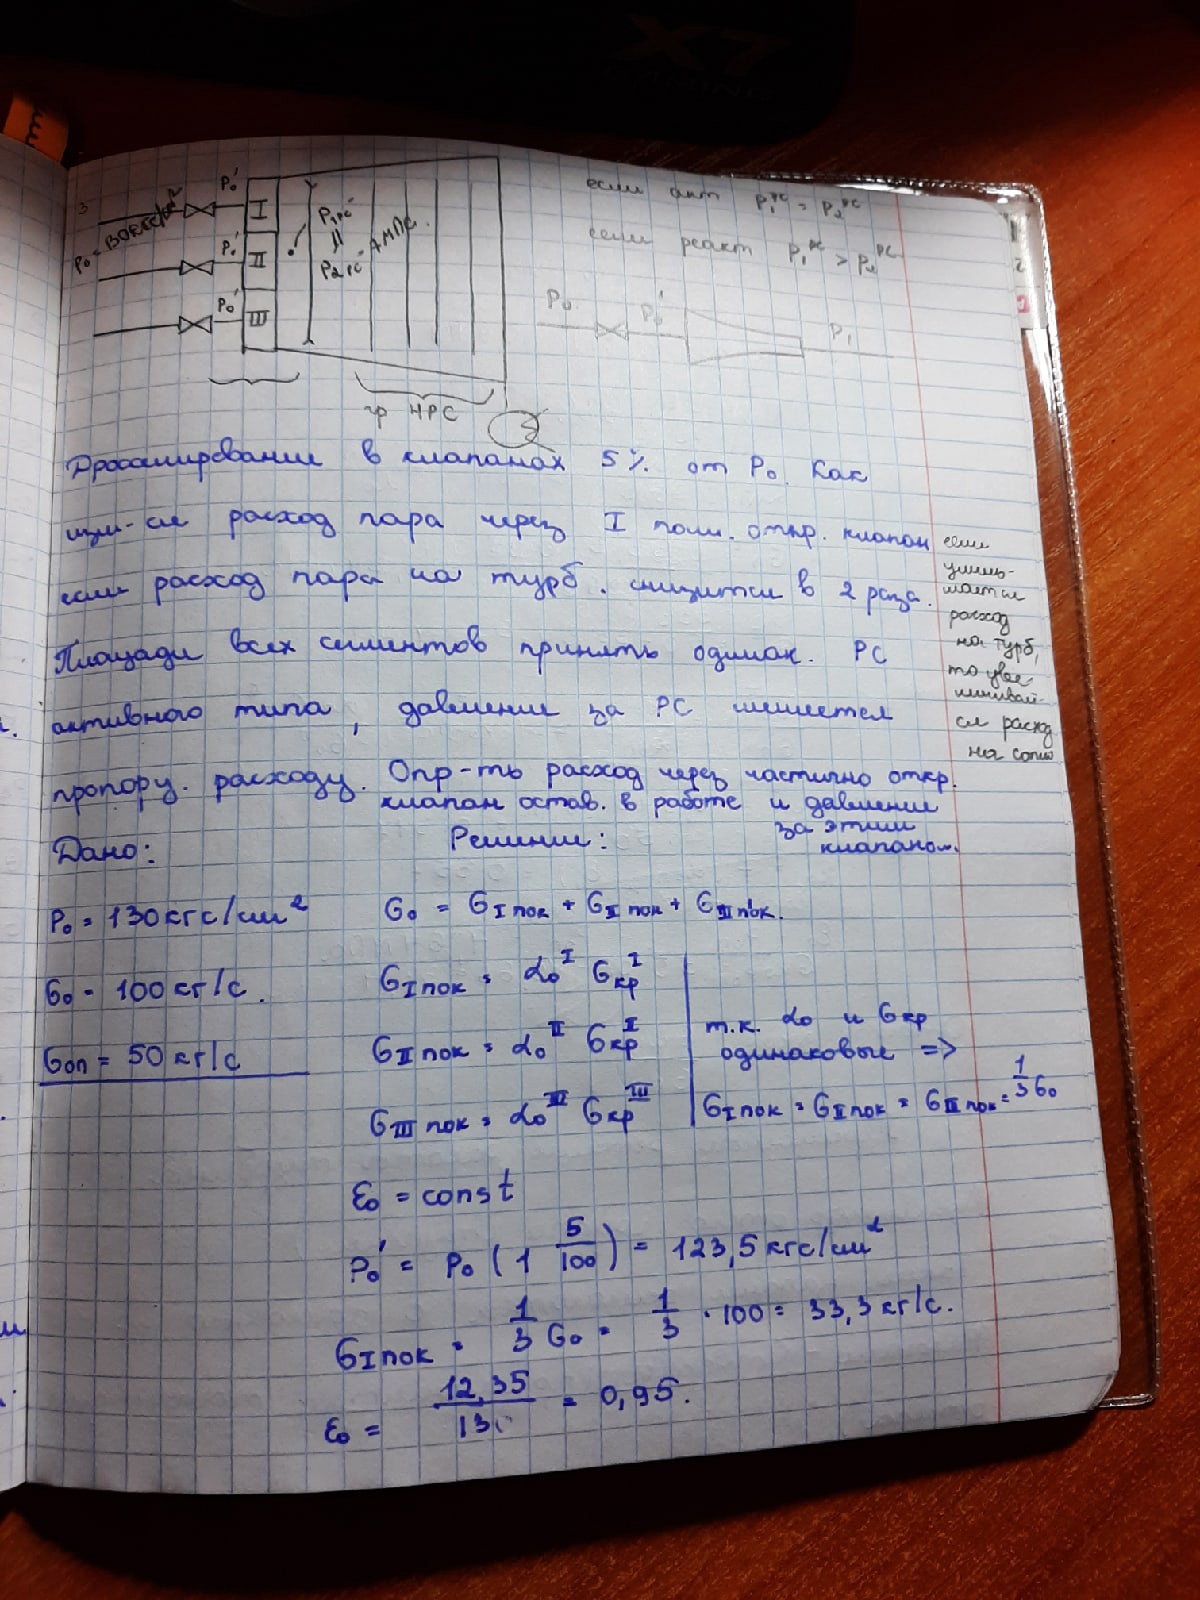 X7
GAMING
3
P₀'
P₀ = 130кгс/см²
I
P₀'
II
P₀'
III
P₁рс
||
P₂рс
АМПС.
гр НРС
если акт P₁рс = P₂рс
если реакт P₁рс > P₂рс
P₀ P₀' P₁
Дросселирование в клапанах 5% от P₀. Как
изм-ся расход пара через I полн. откр. клапан
если расход пара на турб. снизится в 2 раза.
Площади всех сегментов принять одинак. РС
активного типа, давление за РС меняется
пропорц. расходу. Опр-ть расход через частично откр.
клапан остав. в работе и давление
за этим
клапаном.
если
умень-
шается
расход
на турб,
то уве
личивай-
ся расход
на сопло
Дано: Решение:
P₀ = 130кгс/см² G₀ = GI пок + GII пок + GIII пок.
G₀ = 100кг/с. GI пок = α₀ᴵ Gкрᴵ
G₀п = 50кг/с GII пок = α₀ᴵᴵ Gкрᴵ
GIII пок = α₀ᴵᴵᴵ Gкрᴵᴵᴵ
т.к. α₀ и Gкр
одинаковые =>
GI пок = GII пок = GIII пок = 1/3 G₀
ε₀ = const
P₀' = P₀ (1 5/100) = 123,5кгс/см²
GI пок = 1/3 G₀ = 1/3 · 100 = 33,3кг/с.
ε₀ = 12,35/130 = 0,95.